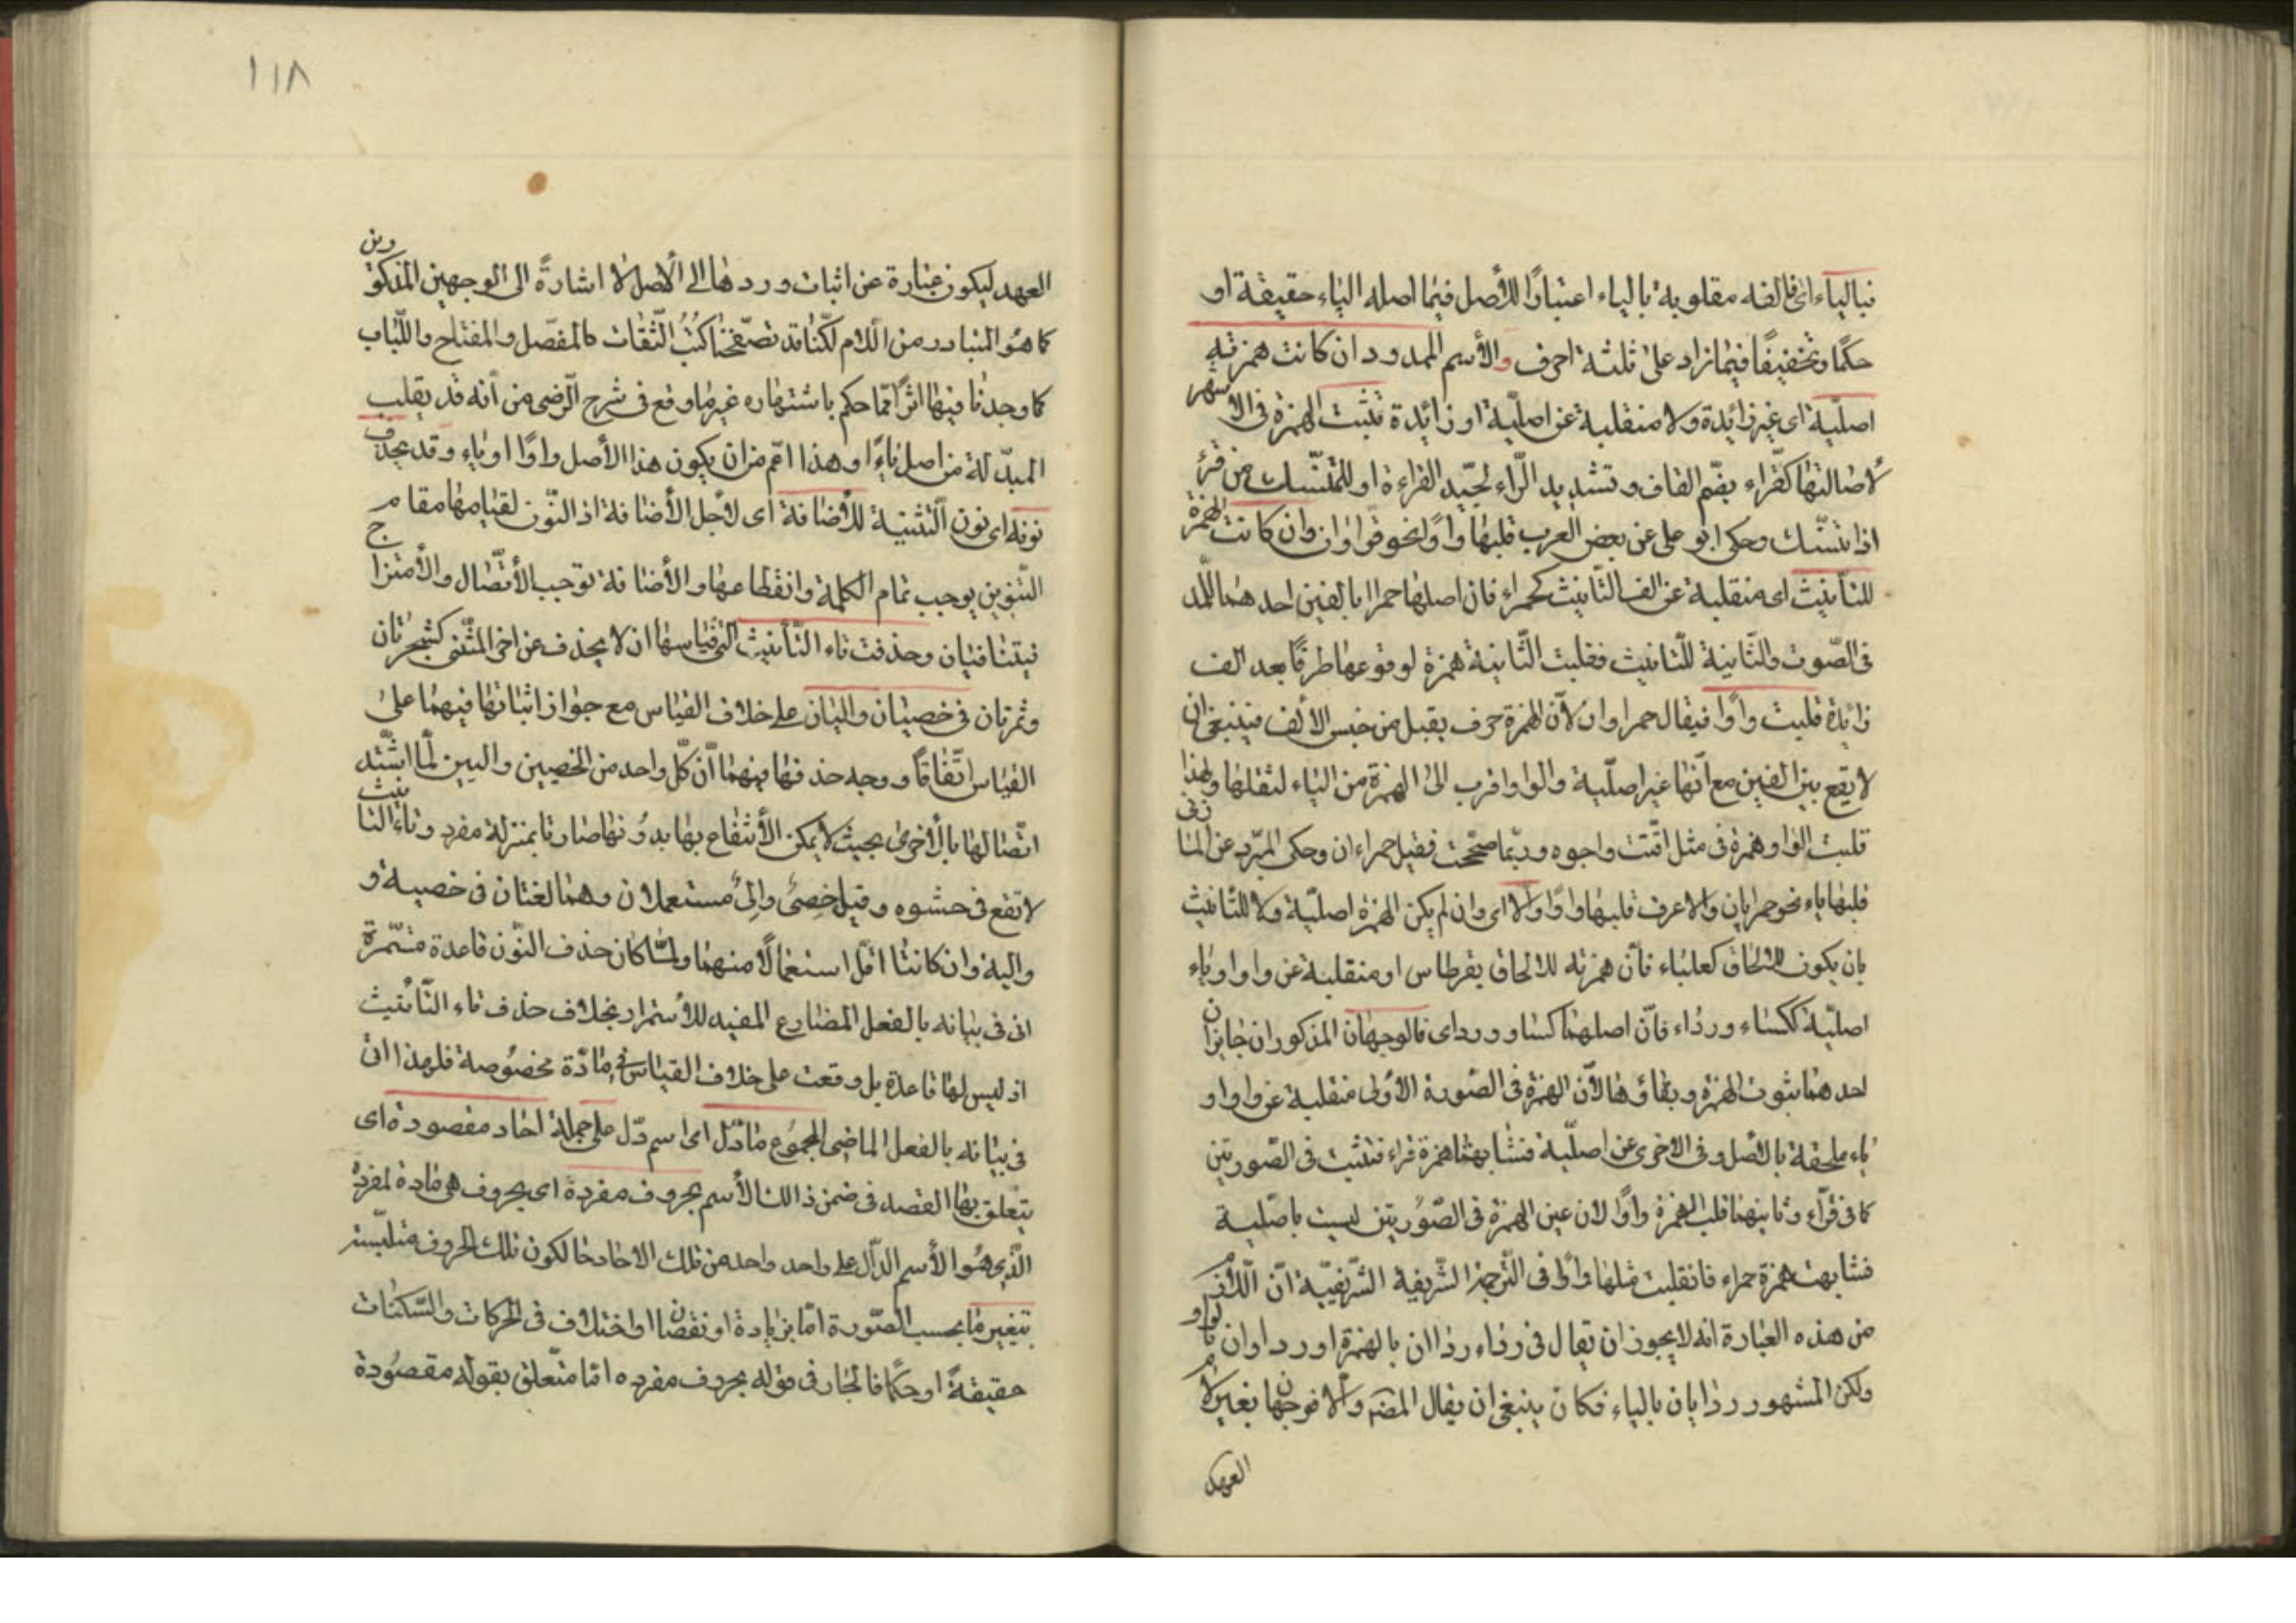 فبالياء اى فالفه مقلوبة بالياء اعتبارًا للأصل فيما اصله الياء حقيقة او
حكمًا وتخفيفًا فيما زاد على ثلثة احرف والأسم الممدود ان كانت همزته
اصلية اى غير زائدة ولا منقلبة عن اصلية او زائدة تثبت الهمزة فى الاشهر
لأصالتها كقراء بضم القاف وتشديد الراء لجيد القراءة او للمتنسك من قرأ
اذا تنسك وحكى ابو على عن بعض العرب قلبها واوًا نحو قراوان وان كانت الهمزة
للتأنيث اى منقلبة عن الف التأنيث كحمراء فان اصلها حمراا بالفين احدهما للمد
فى الصوت والثانية للتانيث فقلبت الثانية همزة لوقوعها طرفًا بعد الف
زائدة قلبت واوًا فيقال حمراوان لأن الهمزة حرف يقبل من جنس الألف فينبغى ان
لا يقع بين الفين مع انها غير اصلية والواو اقرب الى الهمزة من الياء لثقلها ولهذا
قلبت الواو همزة فى مثل اقتت واجوه وربما صححت فقيل حمراءان وحكى المبرد عن المازنى
قلبها ياء نحو حمرايان والاعرف قلبها واوًا والا اى وان لم يكن الهمزة اصلية ولا للتانيث
بان يكون للالحاق كعلباء فان همزته للالحاق بقرطاس او منقلبة عن واو او ياء
اصلية ككساء ورداء فان اصلهما كساو ورداى فالوجهان المذكوران جايزان
احدهما ثبوت الهمزة وبقاؤها لأن الهمزة فى الصورة الأولى منقلبة عن واو او
ياء ملحقة بالاصل وفى الاخرى عن اصلية فشابهتا همزة قراء فتثبت فى الصورتين
كما فى قراء وثانيهما قلب الهمزة واوًا لان عين الهمزة فى الصورتين ليست باصلية
فشابهت همزة حمراء فانقلبت مثلها واوًا فى الترجمة الشريفة الشريفية ان اللازم
من هذه العبارة انه لا يجوز ان يقال فى رداء رداان بالهمزة او رداوان بالواو
ولكن المشهور ردايان بالياء فكان ينبغى ان يقال المصـ والا فوجهان بغير لام
العهد
١١٨
العهد ليكون عبارة عن اثبات وردها الى الأصل لا اشارةً الى الوجهين المذكورين
كما هو المتبادر من اللام لكنا قد تصفحنا كتب الثقات كالمفصل والمفتاح واللباب
كما وجدنا فيها اثرًا مما حكم باشتهاره غير ما وقع فى شرح الرضى من انه قد يقلب
المبدلة من اصل ياءً وهذا اعم من ان يكون هذا الأصل واوًا او ياء وقد يحذف
نونه اى نون التثنية للأضافة اى لأجل الأضافة اذ النون لقيامها مقام
التنوين يوجب تمام الكلمة وانقطاعها والأضافة توجب الأتصال والأمتزاج
فيتنافيان وحذفت تاء التأنيث التى قياسها ان لا يحذف عن اخر المثنى كشجرتان
وثمرتان فى خصيان واليان على خلاف القياس مع جواز اثباتها فيهما على
القياس اتفاقًا ووجه حذفها فيهما ان كل واحد من الخصيين واليين لما اشتد
اتصالها بالأخرى بحيث لا يمكن الأنتفاع بها بدونها صارتا بمنزلة مفرد وتاء التانيث
لا تقع فى حشوه وقيل خصى والى مستعملان وهما لغتان فى خصية و
والية وان كانتا اقل استعمالًا منهما ولما كان حذف النون قاعدة مستمرة
اتى فى بيانه بالفعل المضارع المفيد للأستمرار بخلاف حذف تاء التأنيث
اذ ليس لها قاعدة بل وقعت على خلاف القياس فى مادة مخصوصة فلهذا اتى
فى بيانه بالفعل الماضى المجموع ما دل اى اسم دل على جملة احاد مقصودة اى
يتعلق بها القصد فى ضمن ذالك الأسم بحروف مفرده اى بحروف هى مادة لمفرده
الذى هو الأسم الدال على واحد واحد من تلك الاحاد حالكون تلك الحروف متلبسة
بتغير ما بحسب الصورة اما بزيادة او نقصان او اختلاف فى الحركات والسكنات
حقيقةً او حكمًا فالجار فى قوله بحروف مفرده اما متعلق بقوله مقصودة